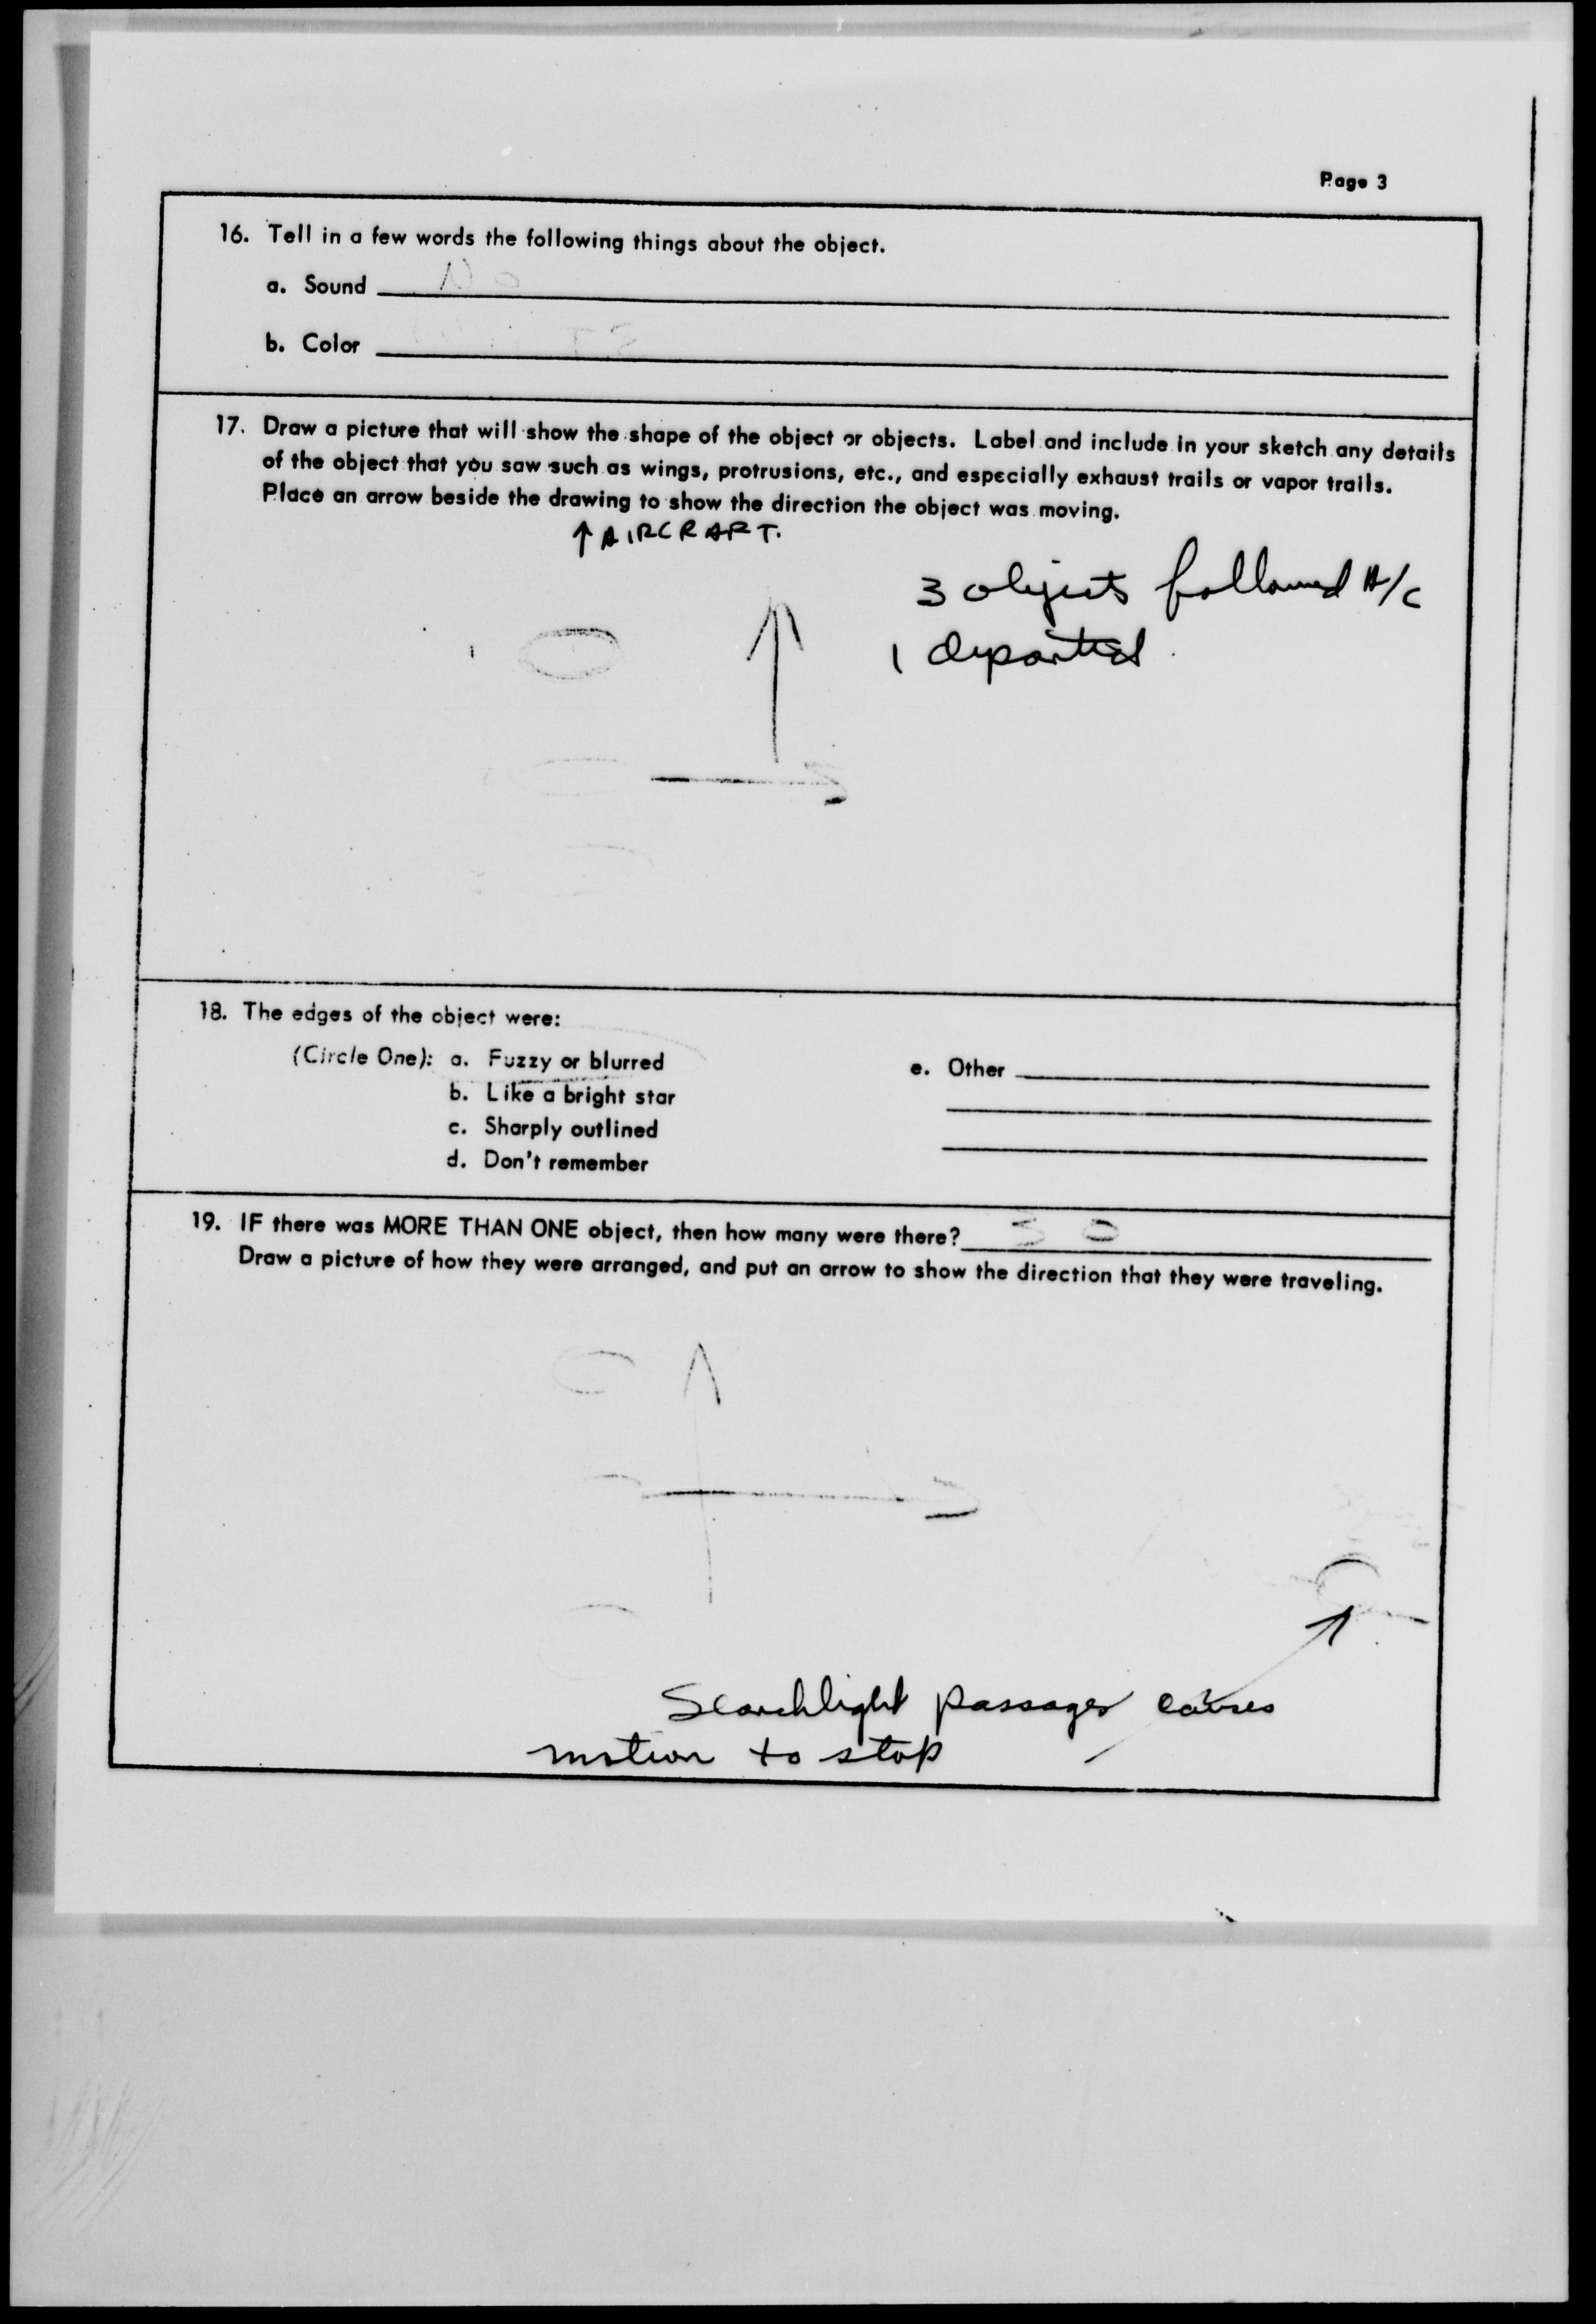 Page 3
16. Tell in a few words the following things about the object.
a. Sound No
b. Color
17. Draw a picture that will show the shape of the object or objects. Label and include in your sketch any details
of the object that you saw such as wings, protrusions, etc., and especially exhaust trails or vapor trails.
Place an arrow beside the drawing to show the direction the object was moving.
↑ AIRCRAFT.
3 objects followed A/C
1 departed.
18. The edges of the object were:
(Circle One): a. Fuzzy or blurred
e. Other
b. Like a bright star
c. Sharply outlined
d. Don't remember
19. IF there was MORE THAN ONE object, then how many were there?
Draw a picture of how they were arranged, and put an arrow to show the direction that they were traveling.
Searchlight passages causes
motion to stop